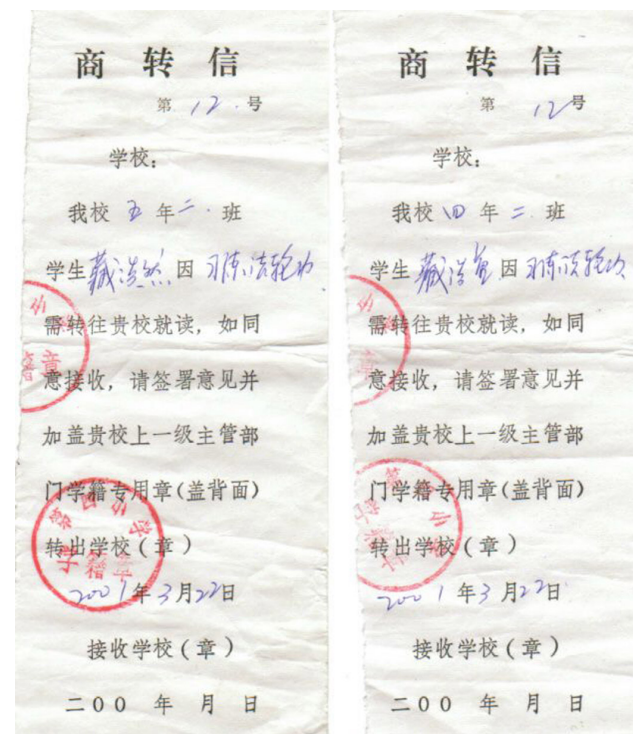 商转信
第12.号
学校:
我校五年二.班
学生藏浩然因习练法轮功
需转往贵校就读,如同
意接收,请签署意见并
加盖贵校上一级主管部
门学籍专用章(盖背面)
转出学校(章)
2001年3月22日
接收学校(章)
二00 年 月 日
第四小学
籍章
商转信
第12号
学校:
我校四年二.班
学生藏浩 因习练法轮功
需转往贵校就读,如同
意接收,请签署意见并
加盖贵校上一级主管部
门学籍专用章(盖背面)
转出学校(章)
2001年3月22日
接收学校(章)
二00 年 月 日